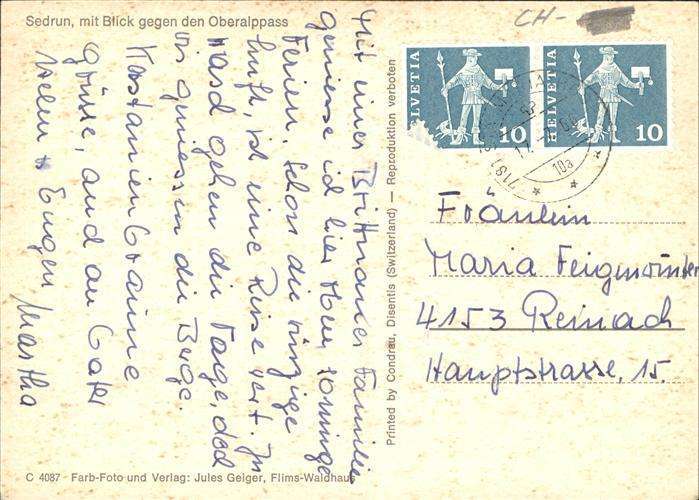 Sedrun, mit Blick gegen den Oberalppass
CH-
HELVETIA 10
HELVETIA 10
7181
10a
Mit einer Familien
geniesse ich hier sonnige
Ferien. Schon die würzige
Luft, ist eine Reise wert. In
rasch gehen die Tage, doch
wir geniessen die Berge.
Kastanienbraune
Grüsse, auch an Vater
Helen + Eugen Martha
Printed by Condrau, Disentis (Switzerland) — Reproduktion verboten
Fräulein
Maria Feigenwinter
4153 Reinach
Hauptstrasse, 15.
C 4087 Farb-Foto und Verlag: Jules Geiger, Flims-Waldhaus